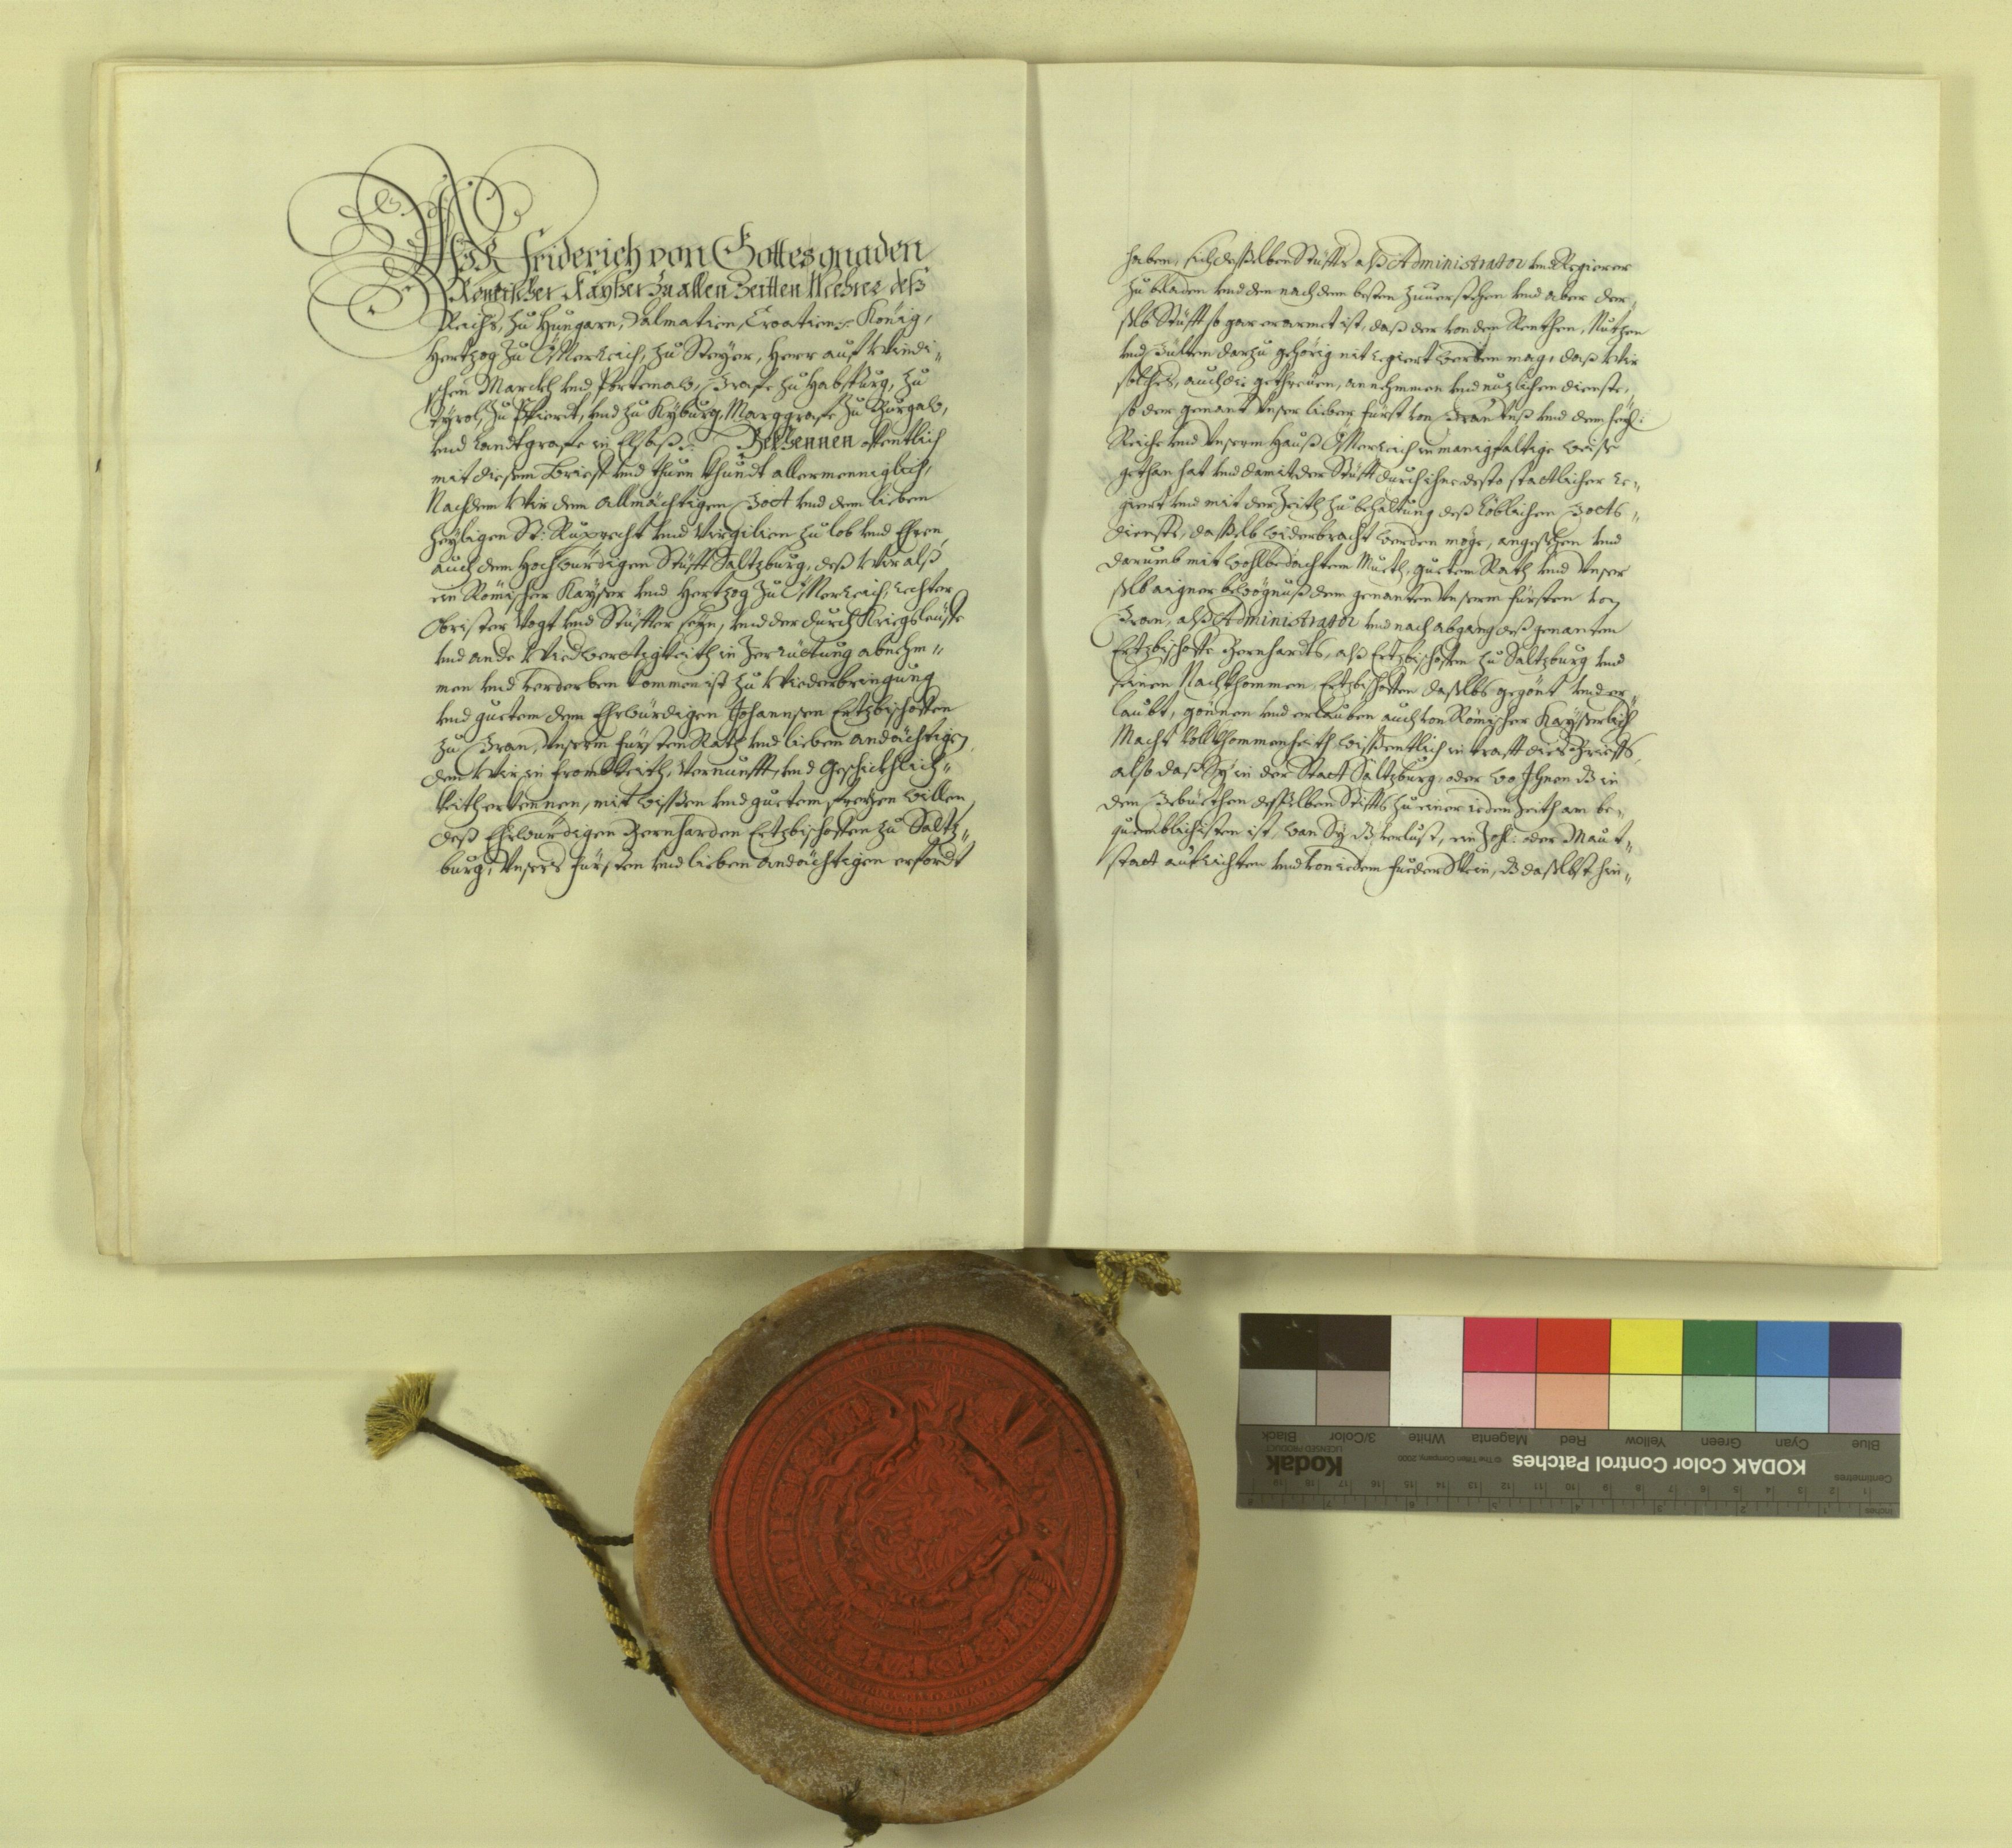 Wür Friderich von Gottes gnaden
Römischer Kayßer Zu allen Zeitten Mehrer deß
Reichs, zu Hungarn, Dalmatien, Croatien: Konig,
Hertzog zu Össterreich, zu Steyer, Herr auf Windi„
schen Marckh vnd Portenaw, Grafe zu Habspurg, zu
Tyrol, zu Pfierdt, vnd zu Kyburg, Marggrafe zu Burgaw,
vnd Landtgrafe in Elsaß: Bekhennen offentlich
mit diesem Brieff vnd thuen khundt allermenniglich,
Nachdem Wir dem Allmächtigen Gott vnd dem lieben
Heyligen St: Ruprecht vnd Virgilien zu lob vnd Ehren,
auch dem Hochwürdigen Stüfft Saltzburg, deß Wir alß
ein Römischer Kayser vnd Hertzog zu Össterreich, rechter
Obrister Vogt vnd Stüffter seyn, vnd der durch Kriegsleüffe
vnd ande Widwerttigkeith in Zerrüttung abnehm„
men vnd verderben kommen ist zu Wiederbringung
vnd guetem dem Ehrwürdigen Johannsen Ertzbischoffen
zu Gran, Vnserm Fürsten Rath vnd lieben andächtigen,
den Wir in frombkeith, Vernunfft, vnd Geschickhlich„
keith erkennen, mit wissen vnd guetem, freyen willen,
deß Ehrwürdigen Bernharden Ertzbischoffen zu Saltz„
burg, Vnsers Fürsten vnd lieben andächtigen erfordt
haben, sich desselben Stüffts alß Administrator vnd Regierer
zu beladen vnd den nach dem besten zuuorstehen vnd aber der„
selb Stüfft so gar erarmet ist, daß der von den Renthen, Nutzen
vnd Gülten darzu gehörig nit regiert werden mag, daß Wir
solches, auch die getreüen, annehmmen vnd nuzlichen dienste,
so der genant Vnser lieber Fürst von Gran Vnß vnd dem heyl:
Reiche vnd Vnserm Hauß Össterreich in manigfaltige weise
gethan hat vnd damit der Stüfft durch ihne desto stattlicher re„
giert vnd mit der Zeith zu behaltung deß löblichen Gotts„
diensts, dasselb widerbracht werden möge, angesehen vnd
darumb mit wohlbedachtem Mueth, guetem Rath vnd Vnser
selb aigner bewögnuß dem genanten Vnserm Fürsten von
Gran, alß Administrator vnd nach abgang deß genanten
Ertzbischoffe Bernhardts, alß Ertzbischoffen zu Saltzburg vnd
seinen Nachkhommen, Ertzbischoffen daselbs gegönt vnd er„
laubt, gönnen vnd erlauben auch von Römischer Kayserlich
Macht Vollkhommenheith wissentlich in krafft diß Brieffs,
also daß Sy in der Statt Saltzburg, oder wo Ihnen diß in
dem Gebürthen desselben Stiffts zu einer ieden Zeith am be„
quemblichisten ist, wan Sy diß verlust, ein Zohl: oder Maut„
statt aufrichten vnd von iedem Fueder Wein, diß daselbst hin„
KODAK Color Control Patches
Kodak
LICENSED PRODUCT
© The Tiffen Company, 2000
Blue Cyan Green Yellow Red Magenta White 3/Color Black
Centimetres
Inches